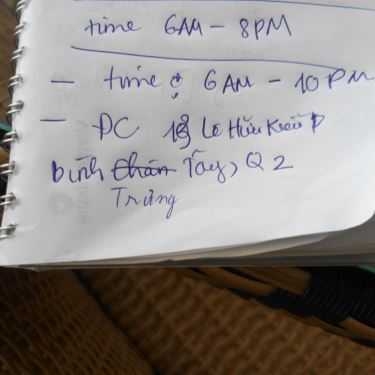 time 6AM - 8PM
- time : 6AM - 10PM
- ĐC Lê Hữu Kiều P
Bình Tây, Q2
Trưng